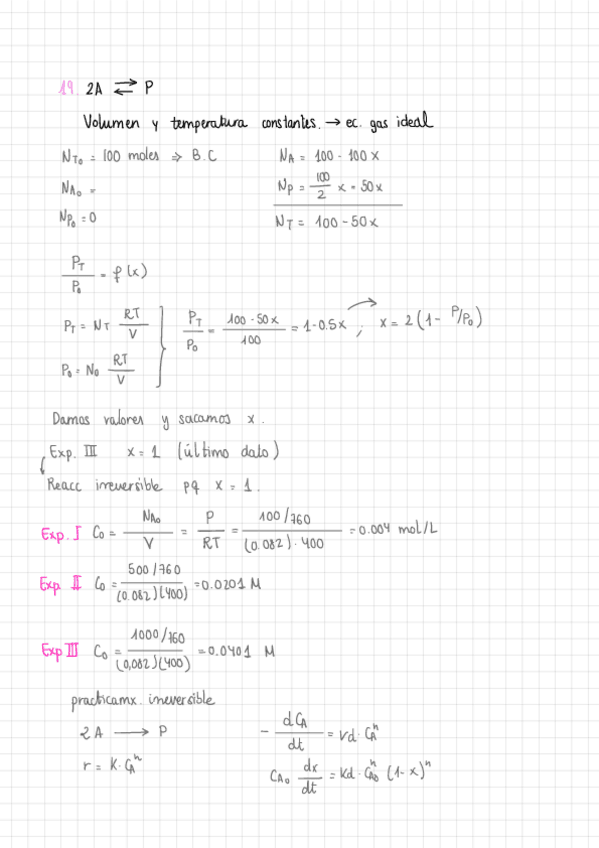 19. 2A ⇄ P
Volumen y temperatura constantes. → ec. gas ideal
N_T0 = 100 moles ⇒ B.C
N_A0 =
N_P0 = 0
N_A = 100 - 100x
N_P = 100/2 x = 50x
N_T = 100 - 50x
P_T/P_0 = f(x)
P_T = N_T RT/V
P_0 = N_0 RT/V
P_T/P_0 = (100 - 50x)/100 = 1 - 0.5x ; x = 2(1 - P/P_0)
Damos valores y sacamos x.
Exp. III x = 1 (último dato)
Reacc irreversible pq x = 1.
Exp. I C_0 = N_A0/V = P/RT = (100/760)/((0.082)·400) = 0.004 mol/L
Exp. II C_0 = (500/760)/((0.082)(400)) = 0.0201 M
Exp III C_0 = (1000/760)/((0,082)(400)) = 0.0401 M
practicamx. irreversible
2A → P
r = K·C_A^n
- dC_A/dt = Kd·C_A^n
C_A0 dx/dt = Kd·C_A0^n (1-x)^n